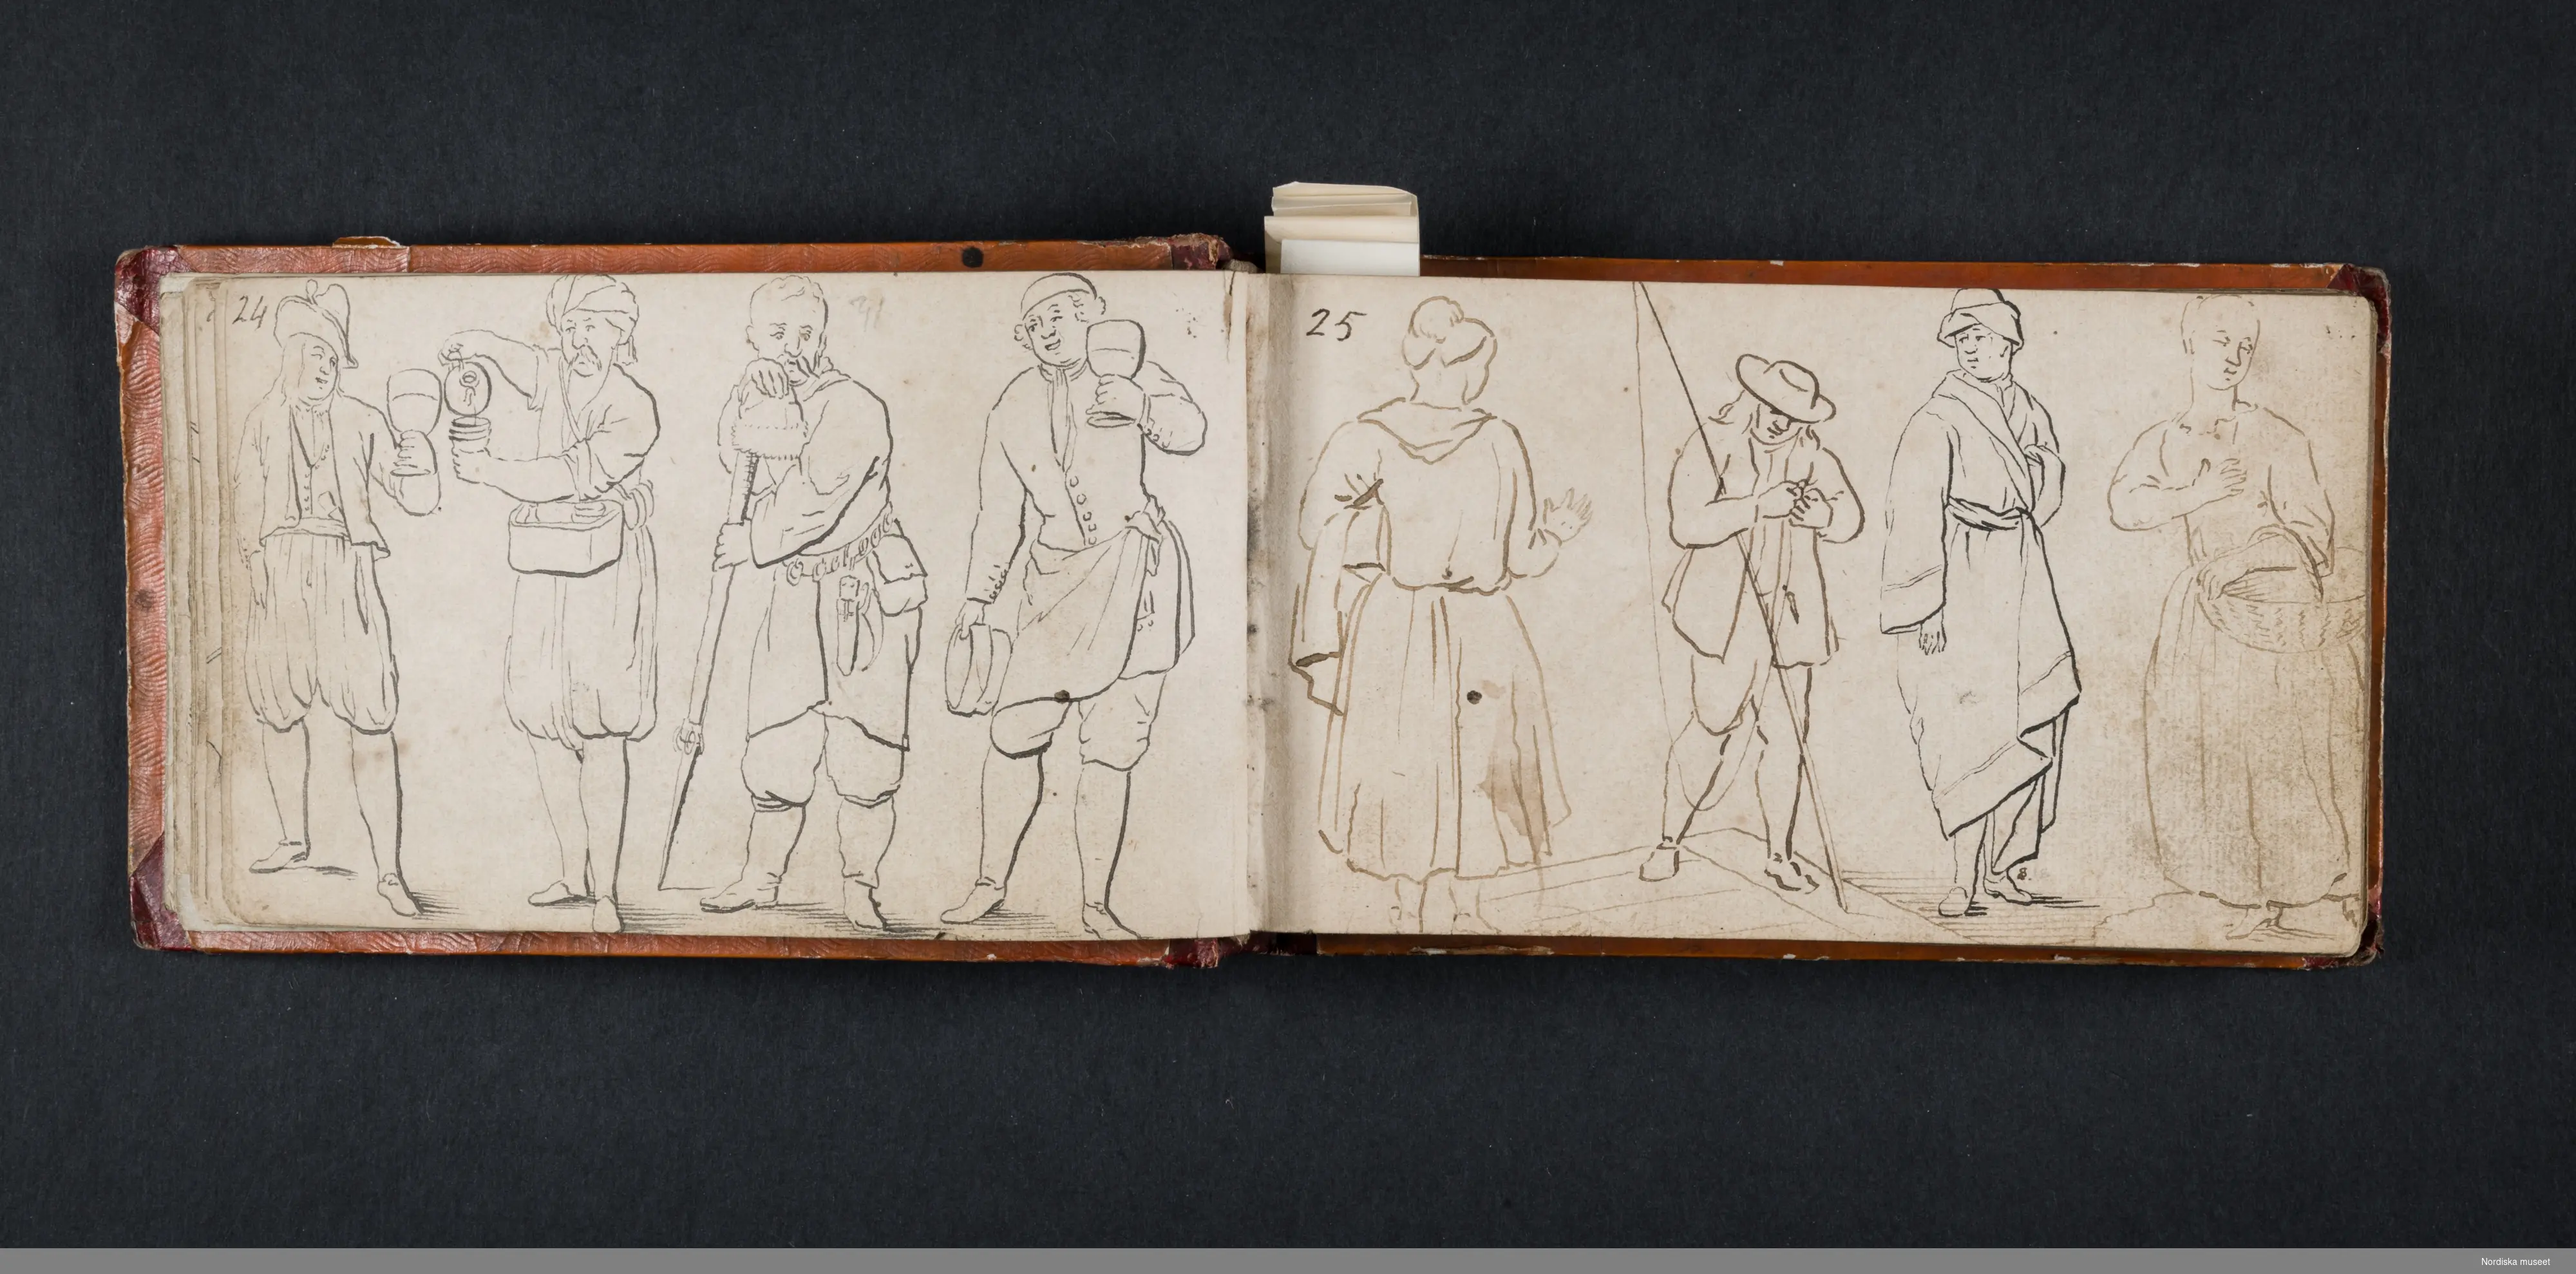 24
25
Nordiska museet